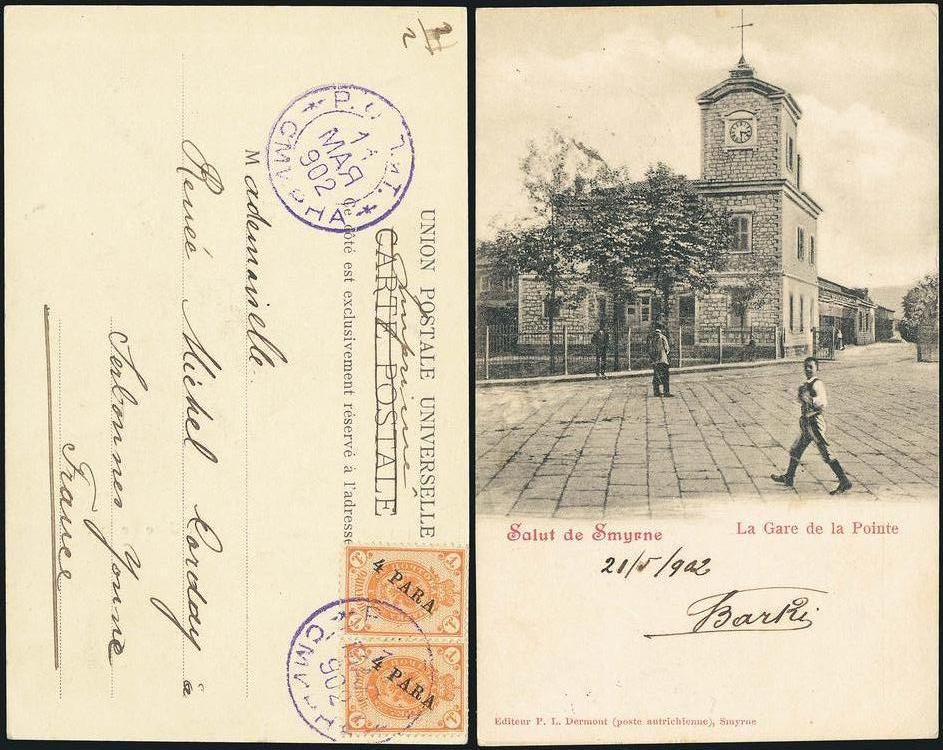 UNION POSTALE UNIVERSELLE
CARTE POSTALE
Imprimé
Ce côté est exclusivement réservé à l'adresse
Mademoiselle
Renée Michel Corday à
Serbonnes Yonne
France
2
P.
11
МАЯ
902
СМИРНА
4 PARA
1
1
4 PARA
1
1
902
СМИРНА
Salut de Smyrne
La Gare de la Pointe
21/5/902
Barki
Editeur P. L. Dermont (poste autrichienne), Smyrne